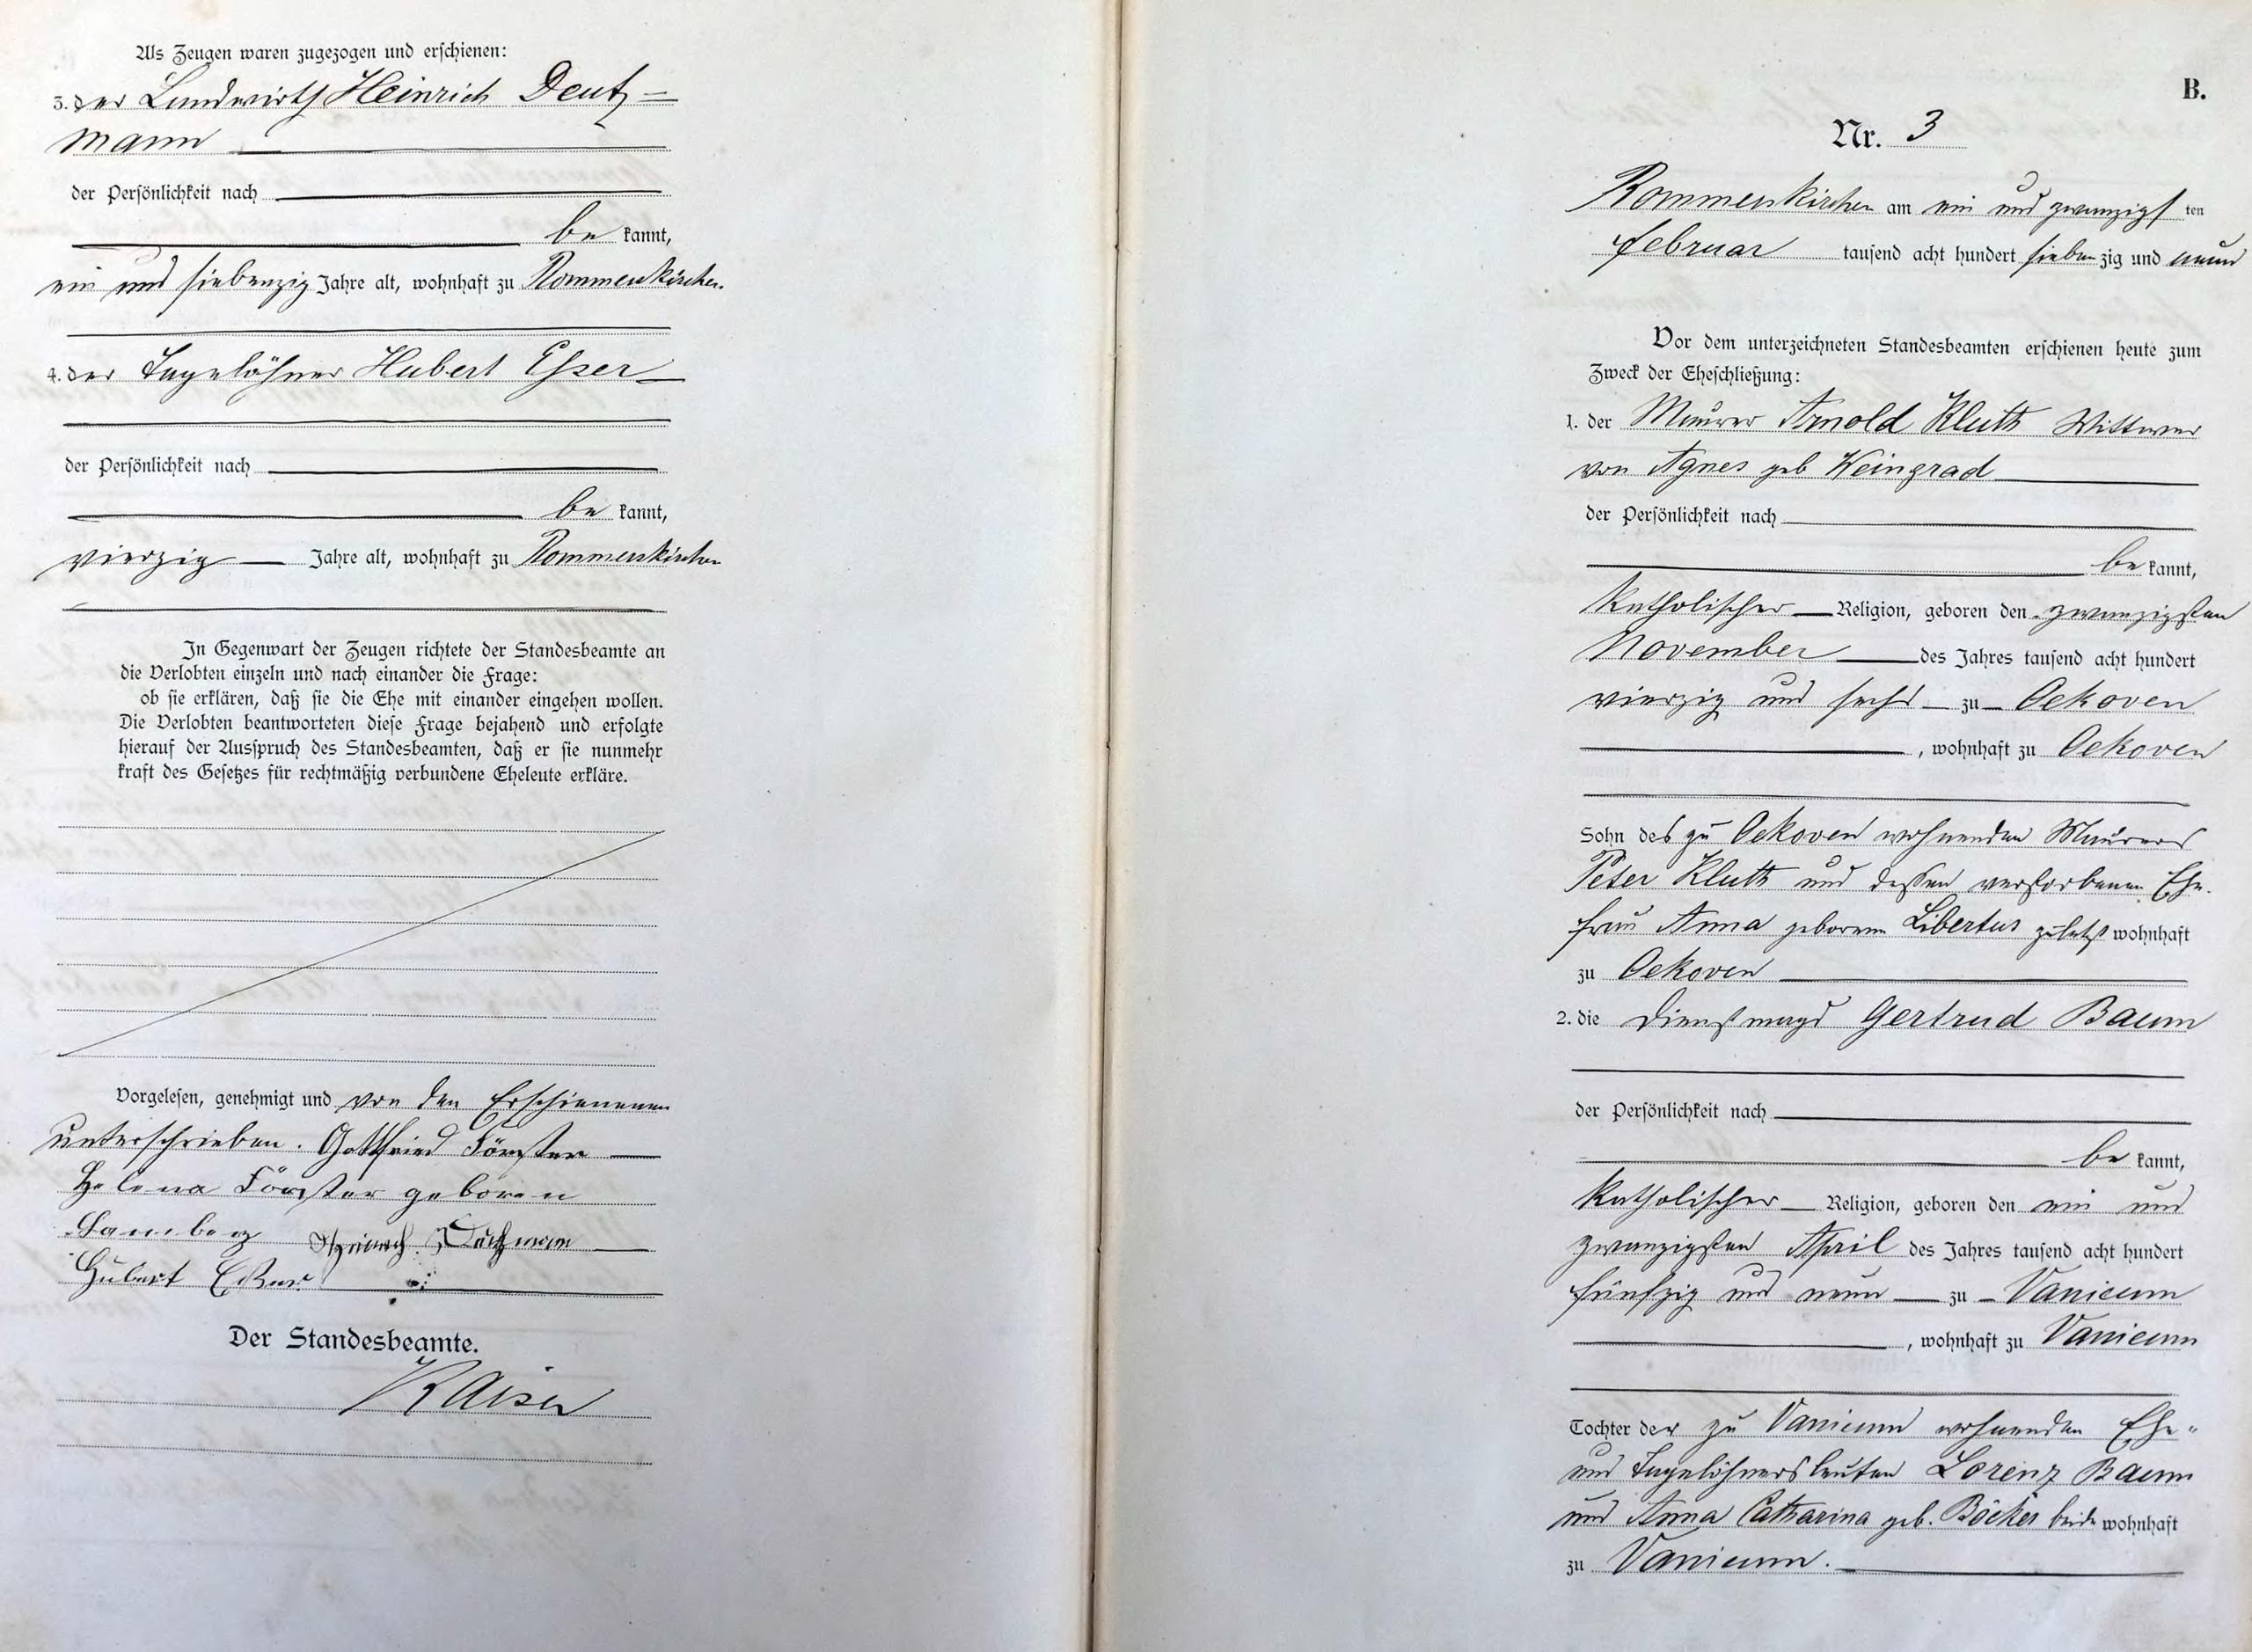 Als Zeugen waren zugezogen und erschienen:
3. der Landwirth Heinrich Deutz=
mann
der Persönlichkeit nach
be kannt,
ein und siebenzig Jahre alt, wohnhaft zu Rommerskirchen.
4. der Tagelöhner Hubert Esser
der Persönlichkeit nach
be kannt,
vierzig Jahre alt, wohnhaft zu Rommerskirchen
In Gegenwart der Zeugen richtete der Standesbeamte an
die Verlobten einzeln und nach einander die Frage:
ob sie erklären, daß sie die Ehe mit einander eingehen wollen.
Die Verlobten beantworteten diese Frage bejahend und erfolgte
hierauf der Ausspruch des Standesbeamten, daß er sie nunmehr
kraft des Gesetzes für rechtmäßig verbundene Eheleute erkläre.
Vorgelesen, genehmigt und von den Erschienenen
unterschrieben. Gottfried Förster
Helena Förster geboren
Samberg Heinrich Deutzmann
Hubert Esser
Der Standesbeamte.
Kaiser
B.
Nr. 3
Rommerskirchen am ein und zwanzigst ten
Februar tausend acht hundert sieben zig und neun
Vor dem unterzeichneten Standesbeamten erschienen heute zum
Zweck der Eheschließung:
1. der Maurer Arnold Kluth Wittwer
von Agnes geb Weingrad
der Persönlichkeit nach
be kannt,
katholischer Religion, geboren den zwanzigsten
November des Jahres tausend acht hundert
vierzig und sechs zu Oekoven
, wohnhaft zu Oekoven
Sohn des zu Oekoven wohnenden Maurers
Peter Kluth und dessen verstorbenen Ehe-
frau Anna geborene Libertus zuletzt wohnhaft
zu Oekoven
2. die Dienstmagd Gertrud Baum
der Persönlichkeit nach
be kannt,
katholischer Religion, geboren den ein und
zwanzigsten April des Jahres tausend acht hundert
fünfzig und neun zu Vanicum
, wohnhaft zu Vanicum
Tochter der zu Vanicum wohnenden Ehe-
und Tagelöhnersleuten Lorenz Baum
und Anna Catharina geb. Böcker beide wohnhaft
zu Vanicum.